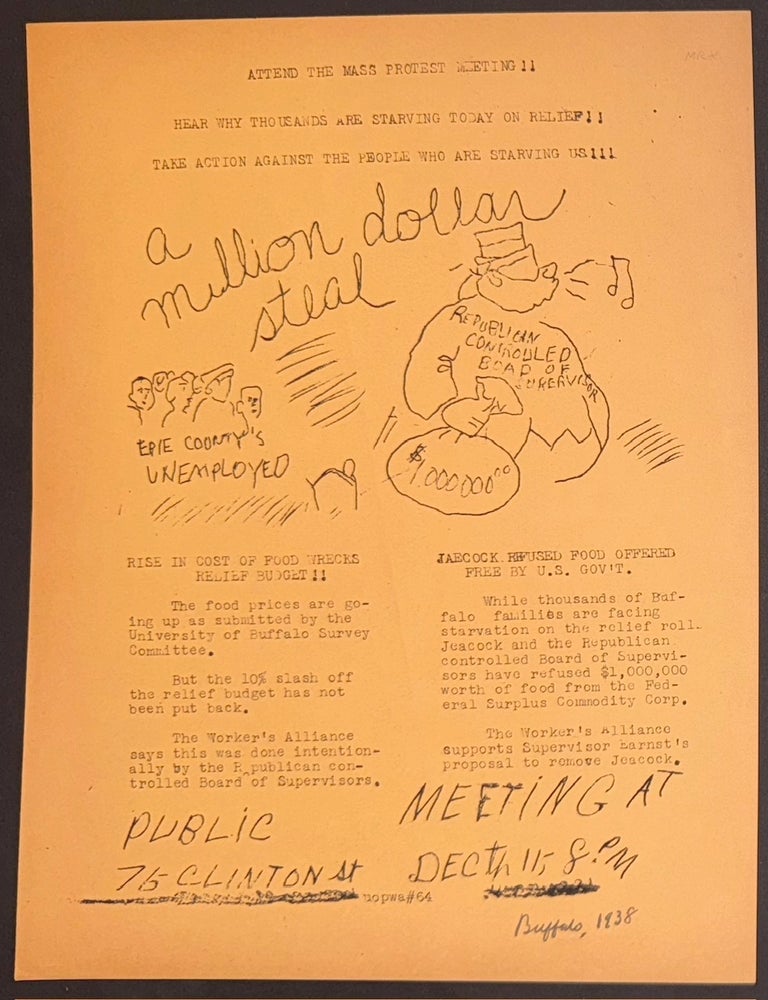 MRX
ATTEND THE MASS PROTEST MEETING!!
HEAR WHY THOUSANDS ARE STARVING TODAY ON RELIEF!!
TAKE ACTION AGAINST THE PEOPLE WHO ARE STARVING US!!!
a
million dollar
steal
REPUBLICAN
CONTROLLED
BOAD OF
SUPERVISOR
ERIE COUNTY'S
UNEMPLOYED
$1,000000.00
RISE IN COST OF FOOD WRECKS
RELIEF BUDGET!!
The food prices are go-
ing up as submitted by the
University of Buffalo Survey
Committee.
But the 10% slash off
the relief budget has not
been put back.
The Worker's Alliance
says this was done intention-
ally by the Republican con-
trolled Board of Supervisors.
JAECOCK REFUSED FOOD OFFERED
FREE BY U.S. GOV'T.
While thousands of Buf-
falo families are facing
starvation on the relief roll.
Jeacock and the Republican
controlled Board of Supervi-
sors have refused $1,000,000
worth of food from the Fed-
eral Surplus Commodity Corp.
The Worker's Alliance
supports Supervisor Earnst's
proposal to remove Jeacock.
PUBLIC MEETING AT
75 CLINTON St DECth 15 8 PM
uopwa#64
Buffalo, 1938